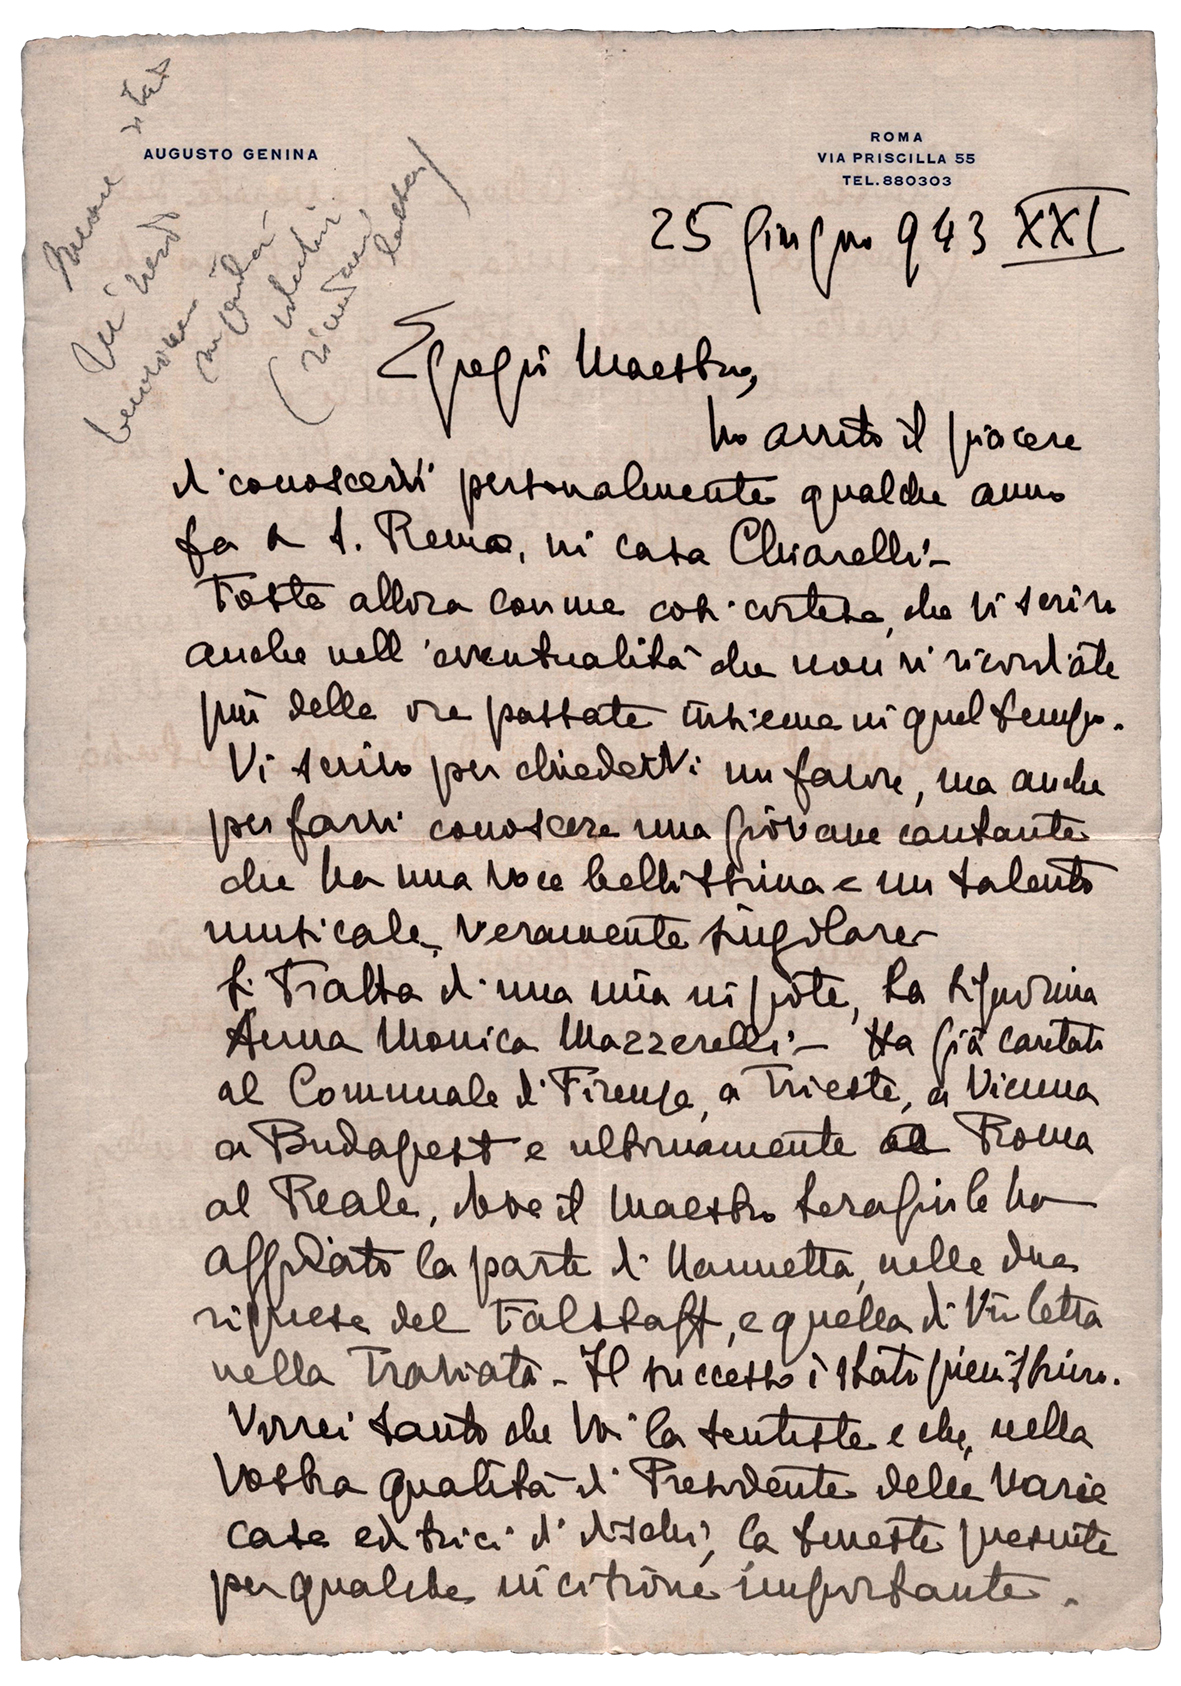 AUGUSTO GENINA
ROMA
VIA PRISCILLA 55
TEL. 880303
25 giugno 943 XXI
Egregio Maestro,
ho avuto il piacere
di conoscervi personalmente qualche anno
fa a S. Remo, in casa Chiarelli -
Foste allora con me così cortese, che vi scrivo
anche nell'eventualità che non vi ricordiate
più delle ore passate insieme in quel tempo.
Vi scrivo per chiedervi un favore, ma anche
per farvi conoscere una giovane cantante
che ha una voce bellissima e un talento
musicale, veramente singolare -
Si tratta di una mia nipote, la Signorina
Anna Monica Mazzerelli - Ha già cantato
al Comunale di Firenze, a Trieste, a Vienna
a Budapest e ultimamente a Roma
al Reale, dove il Maestro Serafin le ha
affidato la parte di Nannetta, nelle due
riprese del Falstaff, e quella di Violetta
nella Traviata - Il successo è stato pienissimo.
Vorrei tanto che Voi la sentiste e che, nella
Vostra qualità di Presidente delle varie
case editrici di dischi, la teneste presente
per qualche incisione importante.